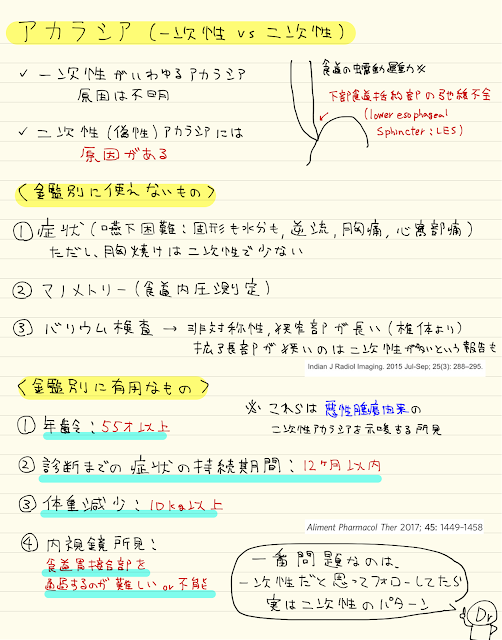 アカラシア (一次性 vs 二次性)
✓ 一次性がいわゆるアカラシア
原因は不明
✓ 二次性 (偽性) アカラシアには
原因がある
食道の蠕動運動力※
下部食道括約部の弛緩不全
(lower esophageal
sphincter : LES)
〈鑑別に使えないもの〉
① 症状 (嚥下困難 : 固形も水分も, 逆流, 胸痛, 心窩部痛)
ただし、胸焼けは二次性で少ない
② マノメトリー (食道内圧測定)
③ バリウム検査 → 非対称性, 狭窄部が長い (椎体より)
拡張部が狭いのは二次性が多いという報告も
Indian J Radiol Imaging. 2015 Jul-Sep; 25(3): 288–295.
〈鑑別に有用なもの〉
① 年齢 : 55才以上
※ これらは悪性腫瘍由来の
二次性アカラシアを示唆する所見
② 診断までの症状の持続期間 : 12ヶ月以内
③ 体重減少 : 10kg以上
Aliment Pharmacol Ther 2017; 45: 1449–1458
④ 内視鏡所見 :
食道胃接合部を
通過するのが難しい or 不能
一番問題なのは、
一次性だと思ってフォローしてたら
実は二次性のパターン
Dr